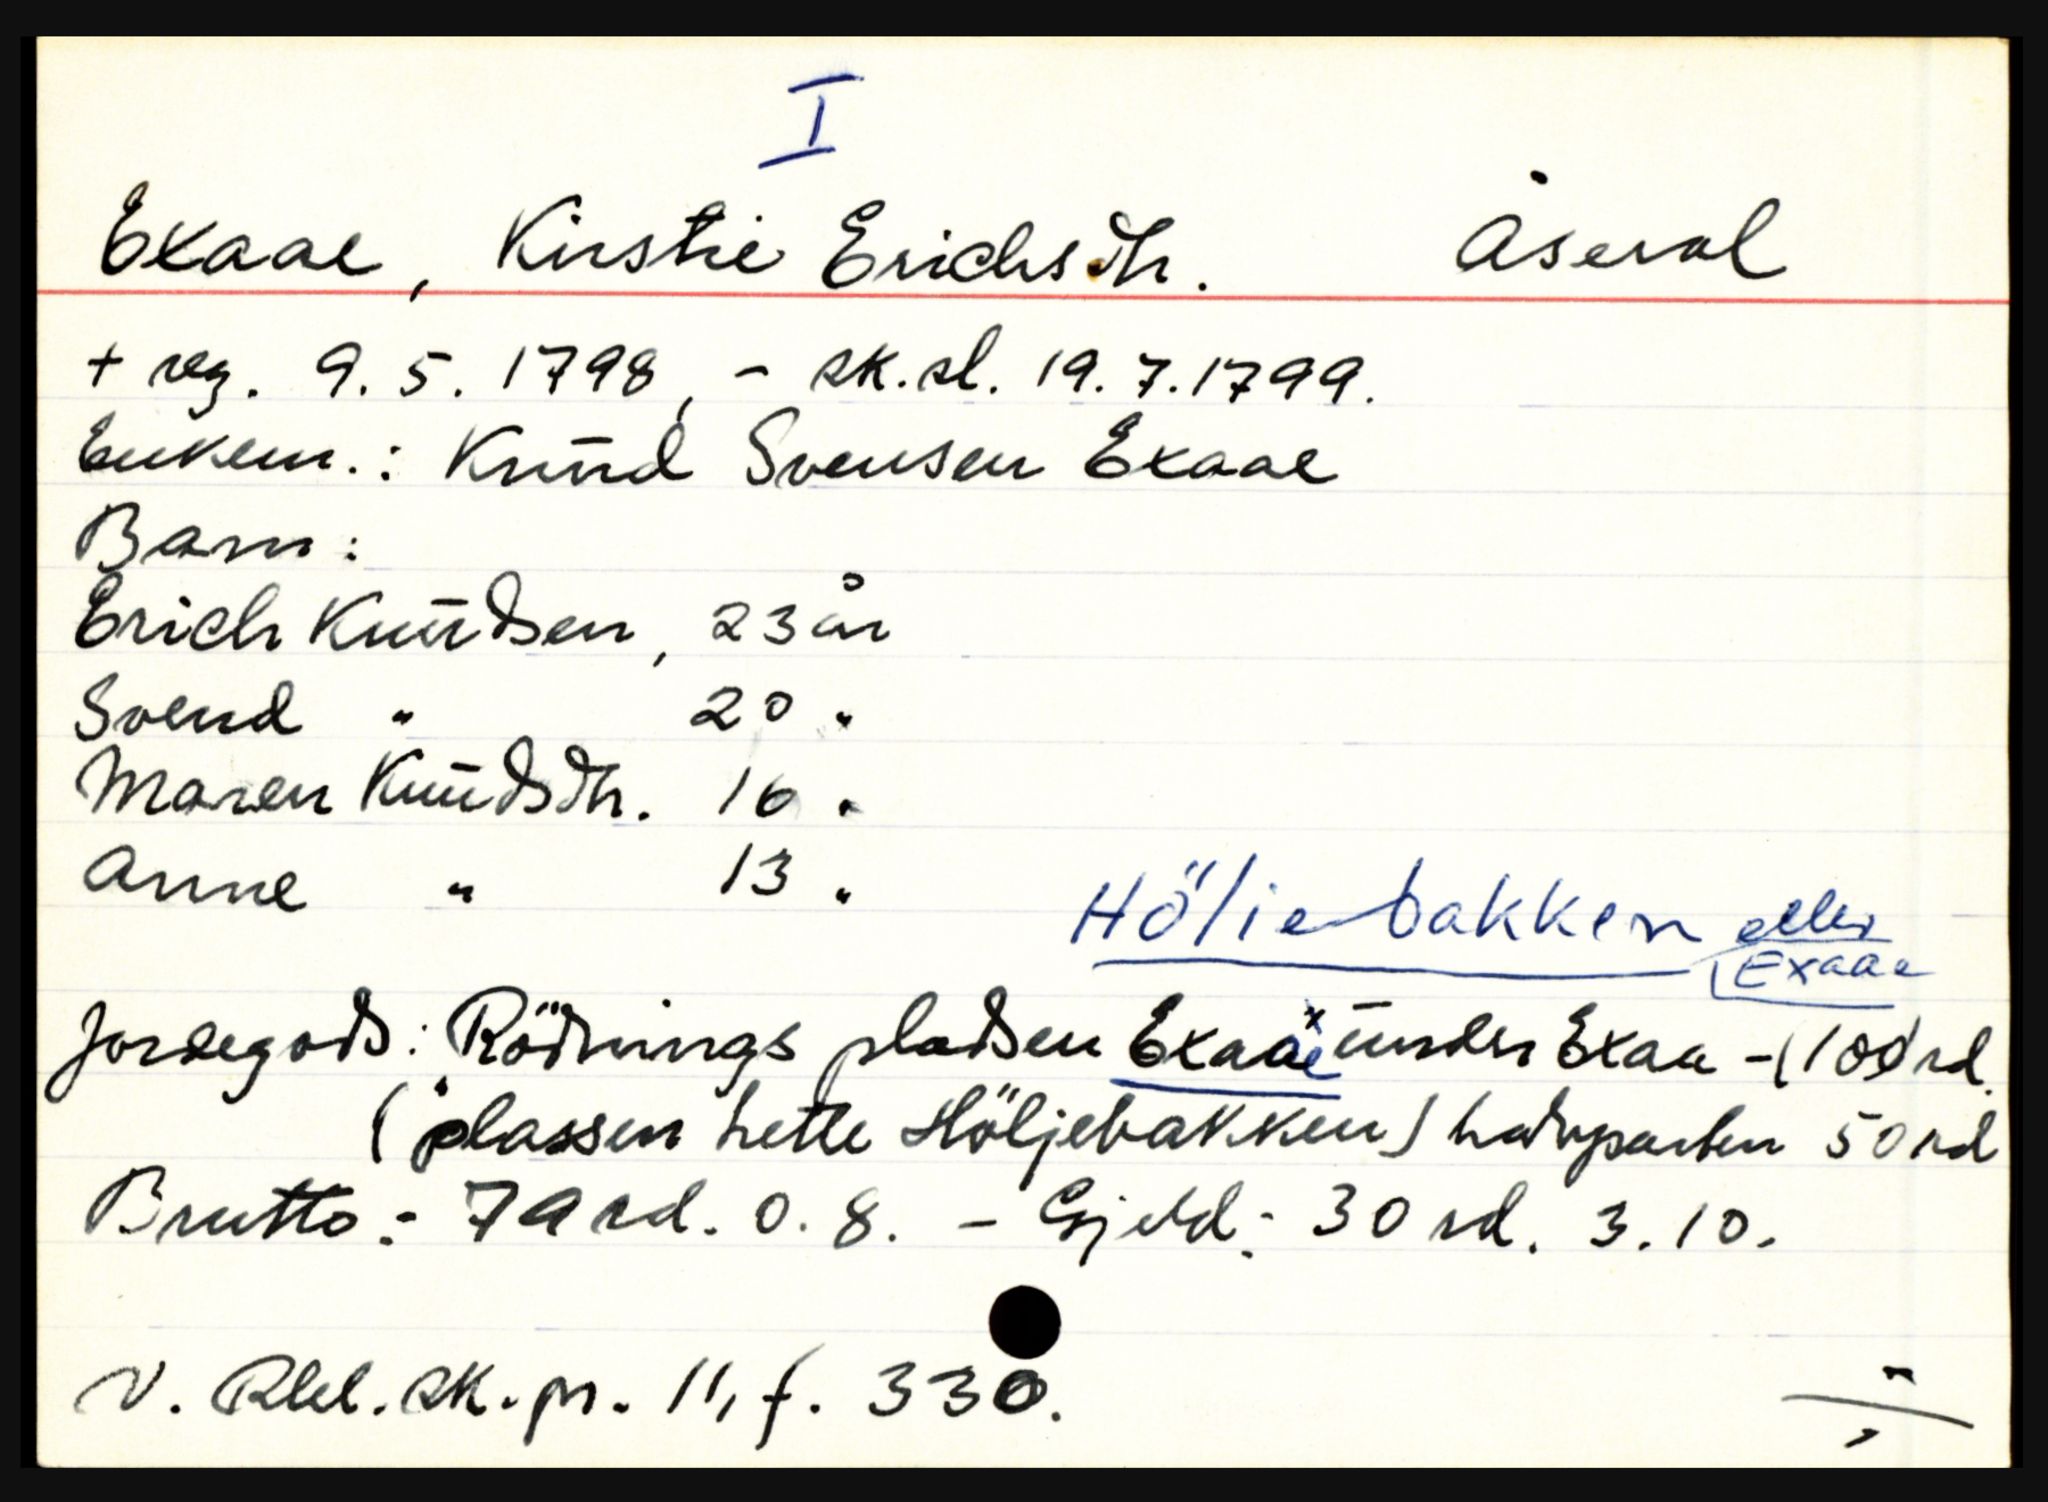 I
Exaae, Kirstie Erichsdtr. Åseral
+ reg. 9.5.1798, - sk.sl. 19.7.1799.
Enkem.: Knūd Svensen Exaae
Barn:
Erich Knūdsen, 23 år
Svend " 20 "
Maren Knūdsdtr. 16 "
Anne " 13 "
Höliebakken eller
Exaae
Jordegods: Rödnings pladsen Exaae x ūnder Exaa - (100) rd.
(plassen hette Höljebakken) halvparten 50 rd
Brutto: 79 rd. 0. 8. - Gjeld: 30 rd. 3. 10.
V. Rbl. sk. pr. 11, f. 330.